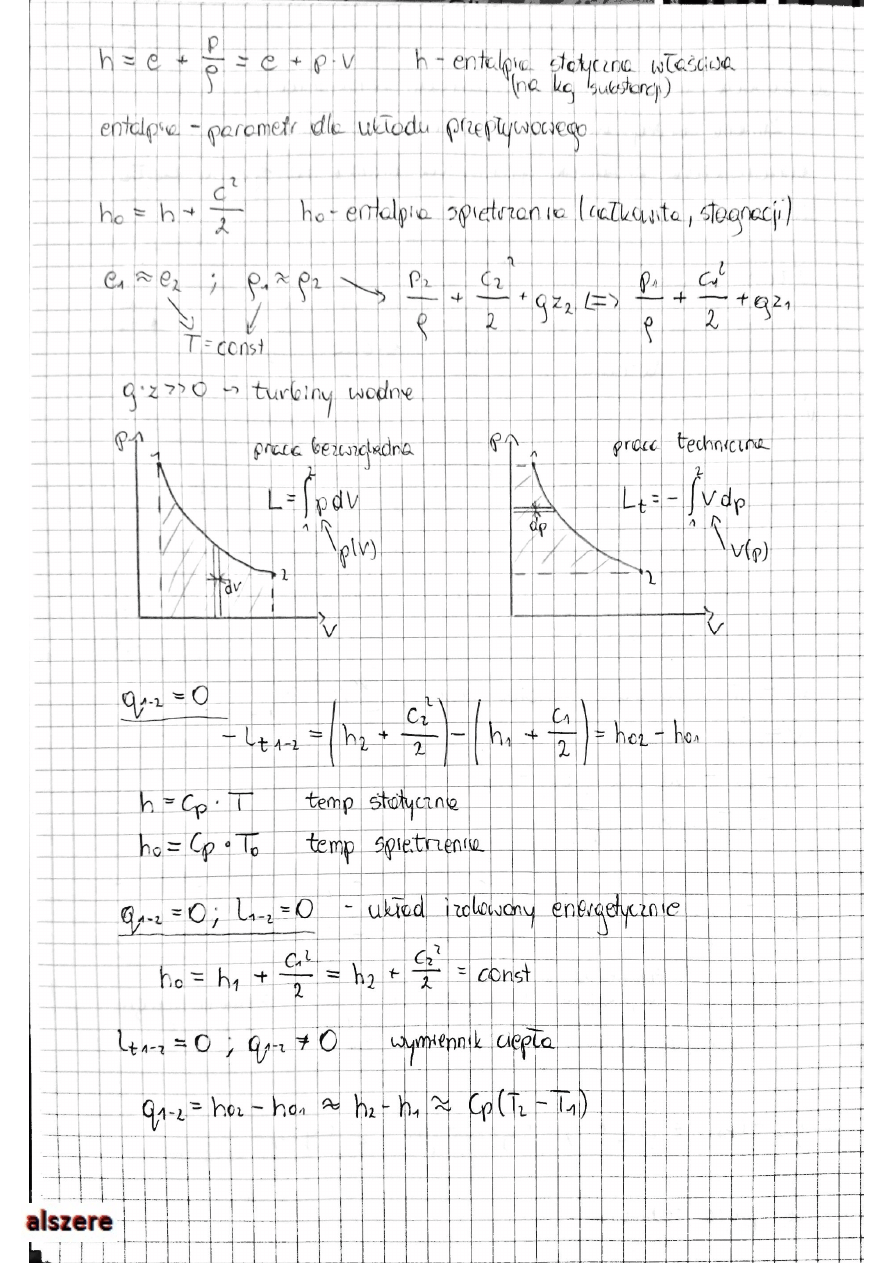 h = e + p/ρ = e + p·v   h - entalpia statyczna właściwa
(na kg substancji)
entalpia - parametr dla układu przepływowego
h₀ = h + c²/2   h₀ - entalpia spiętrzania (całkowita, stagnacji)
e₁ ≈ e₂ ; ρ₁ ≈ ρ₂ → p₂/ρ + c₂²/2 + gz₂ <=> p₁/ρ + c₁²/2 + gz₁
T = const
g·z >> 0 → turbiny wodne
p
1
praca bezwzględna
L = ∫₁² p dV
p(V)
2
dV
V
p
1
praca techniczna
Lt = - ∫₁² V dp
V(p)
dp
2
V
q₁₋₂ = 0
- lt₁₋₂ = (h₂ + c₂²/2) - (h₁ + c₁/2) = h₀₂ - h₀₁
h = Cp · T   temp statyczna
h₀ = Cp · T₀   temp spiętrzenia
q₁₋₂ = 0 ; l₁₋₂ = 0 - układ izolowany energetycznie
h₀ = h₁ + c₁²/2 = h₂ + c₂²/2 = const
lt₁₋₂ = 0 ; q₁₋₂ ≠ 0   wymiennik ciepła
q₁₋₂ = h₀₂ - h₀₁ ≈ h₂ - h₁ ≈ Cp(T₂ - T₁)
alszere